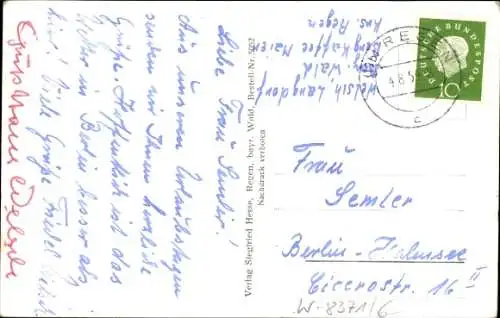 Liebe Frau Semler!
Aus unseren Urlaubstagen
senden wir Ihnen herzliche
Grüße. Hoffentlich ist das
Wetter in Berlin besser als
hier! Viele Grüße Friedel
Verlag Siegfried Hesse, Regen, bayr. Wald, Bestell-Nr.
Nachdruck verboten
Welsch Langdorf
Wald
Bergkaffee Maier
Krs. Regen
REGEN
4.8.5
c
DEUTSCHE BUNDESPOST
10
Frau
Semler
Berlin-Halensee
Cicerostr. 16 II
W-8371/6